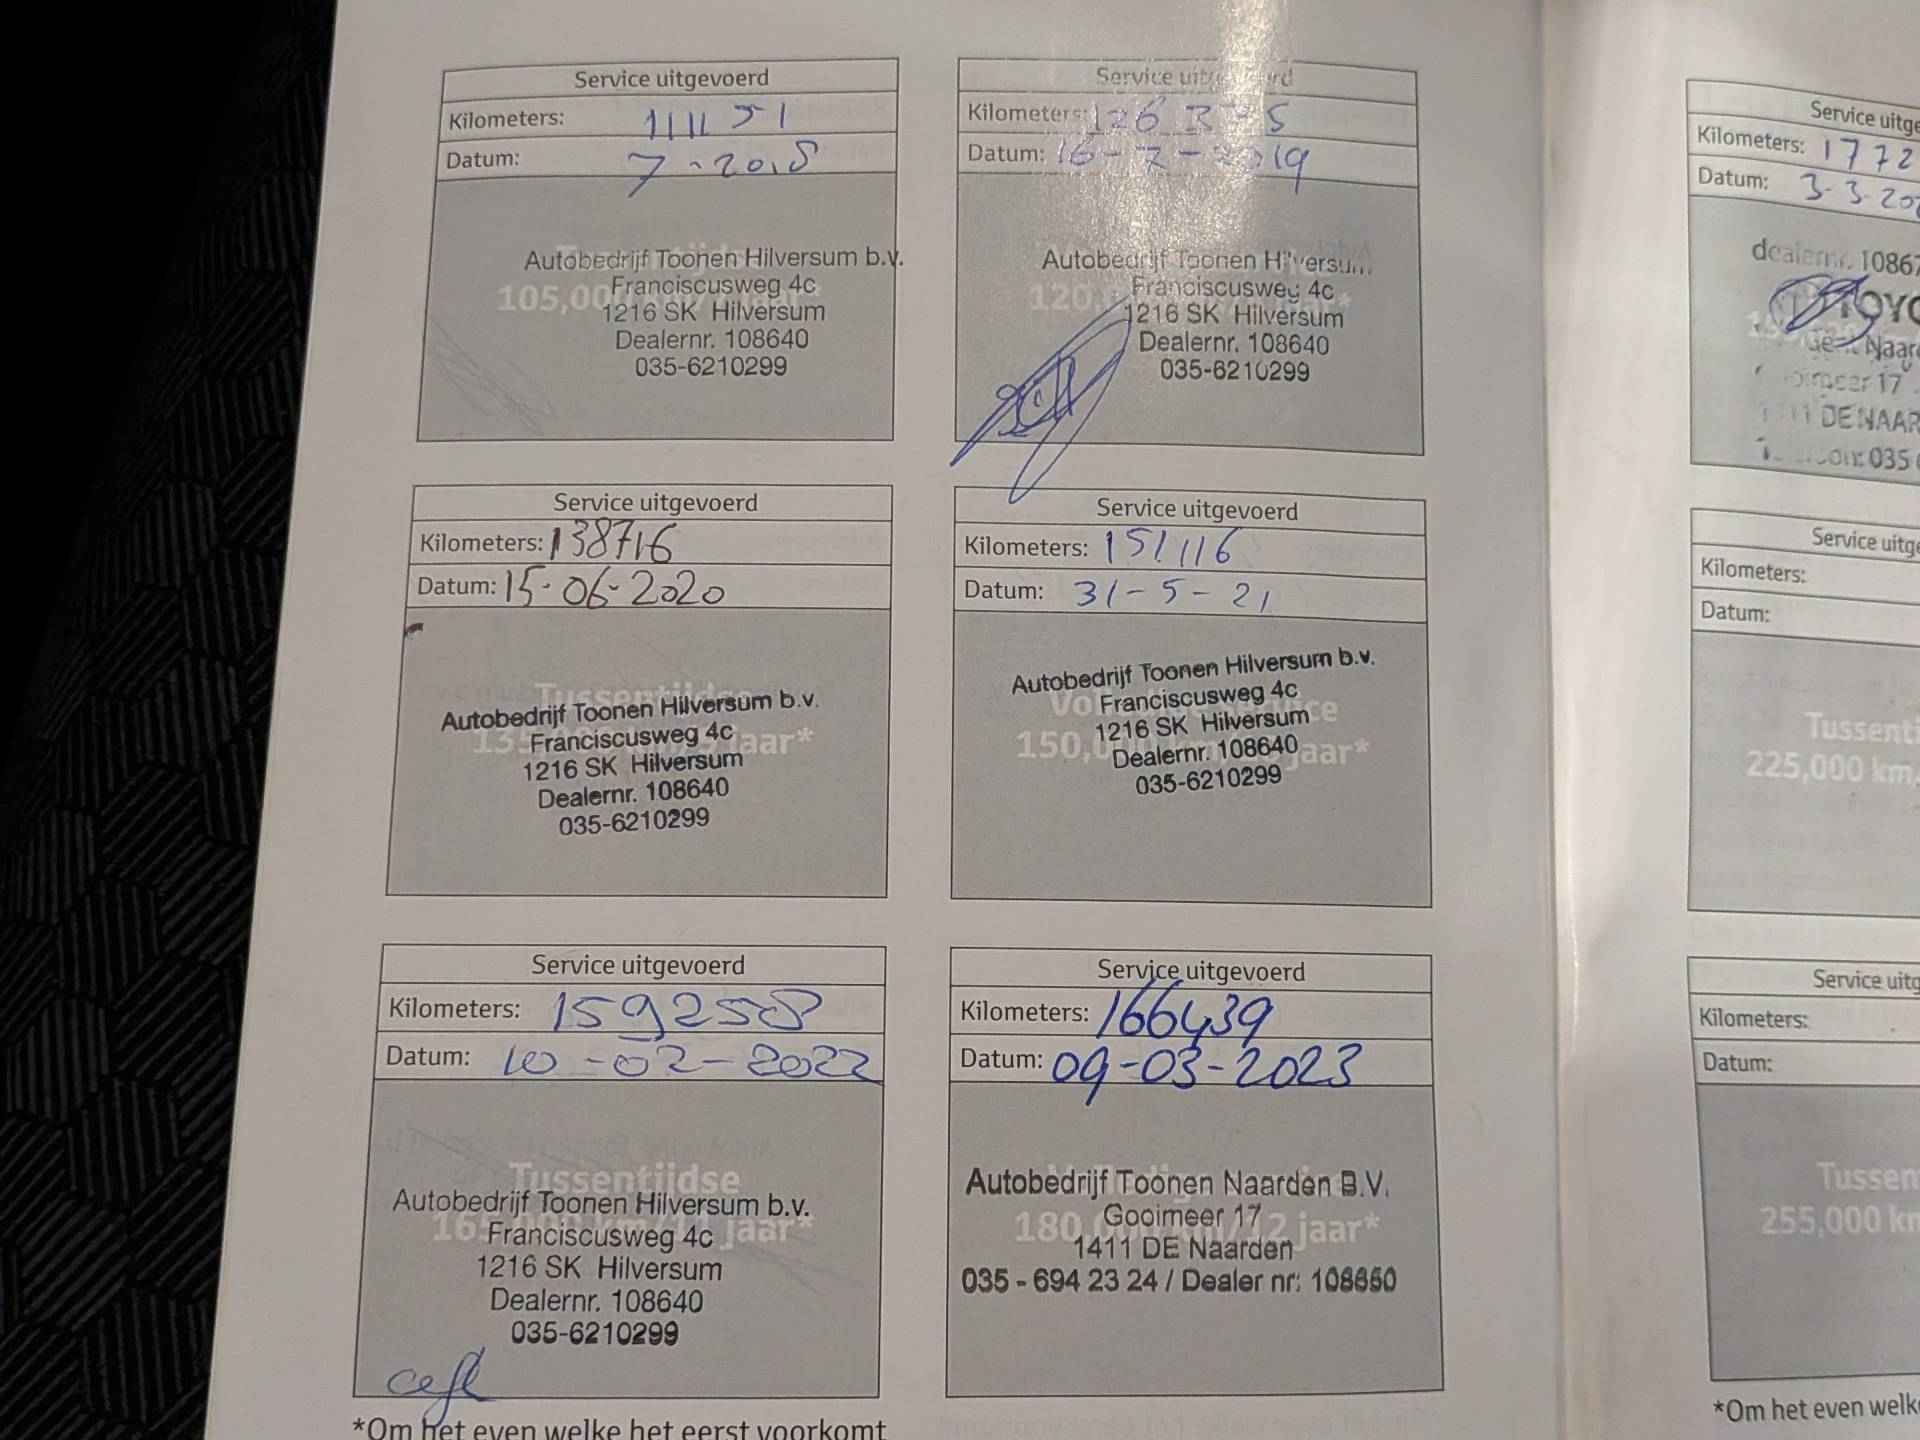 Service uitgevoerd
Kilometers: 111151
Datum: 7-2018
Autobedrijf Toonen Hilversum b.v.
Franciscusweg 4c
1216 SK Hilversum
Dealernr. 108640
035-6210299
Service uitgevoerd
Kilometers:
Datum: 16-7-2019
Autobedrijf Toonen Hilversum
Franciscusweg 4c
1216 SK Hilversum
Dealernr. 108640
035-6210299
Service uitgevoerd
Kilometers: 138716
Datum: 15-06-2020
Tussentijdse
Autobedrijf Toonen Hilversum b.v.
Franciscusweg 4c
jaar*
1216 SK Hilversum
Dealernr. 108640
035-6210299
Service uitgevoerd
Kilometers: 151116
Datum: 31-5-21
Autobedrijf Toonen Hilversum b.v.
Franciscusweg 4c
1216 SK Hilversum
jaar*
Dealernr. 108640
035-6210299
Service uitgevoerd
Kilometers: 159258
Datum: 10-02-2022
Tussentijdse
Autobedrijf Toonen Hilversum b.v.
jaar*
Franciscusweg 4c
1216 SK Hilversum
Dealernr. 108640
035-6210299
Service uitgevoerd
Kilometers: 166439
Datum: 09-03-2023
Autobedrijf Toonen Naarden B.V.
Gooimeer 17
12 jaar*
1411 DE Naarden
035 - 694 23 24 / Dealer nr: 108650
*Om het even welke het eerst voorkomt
Service uitge
Kilometers: 1772
Datum: 3-3-20
dealernr. 10867
TOYO
Naar
17
DE NAAR
035
Service uitge
Kilometers:
Datum:
Tussenti
225,000 km
Service uitg
Kilometers:
Datum:
Tussen
255,000 km
*Om het even welk